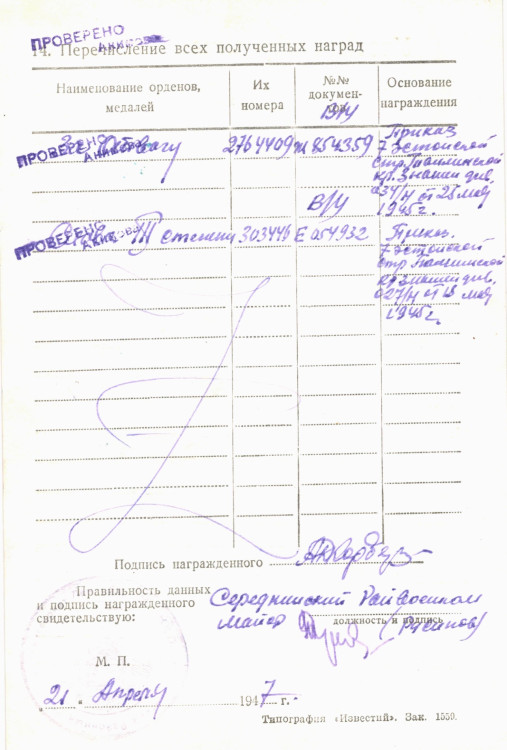 ПРОВЕРЕНО
14. Перечисление всех полученных наград
Наименование орденов, медалей
Их номера
№№ докумен-
Основание награждения
в/ч
За Отвагу 2764409 Ж 854359 Приказ
7 Эстонской
стр. Таллинской
кр. Знамен див.
034/н от 25 мая
1945 г.
ПРОВЕРЕНО
В/ч
III степени 303446 Е 054932 Приказ
7 Эстонской
стр Таллинской
кр Знамен див.
027/н от 18 мая
1945 г.
ПРОВЕРЕНО
Подпись награжденного
Правильность данных
и подпись награжденного
свидетельствую:
Середкинский Райвоенком
майор
должность и подпись
(Русинов)
М. П.
„21 " Апреля 1947 г.
Типография «Известий». Зак. 1550.